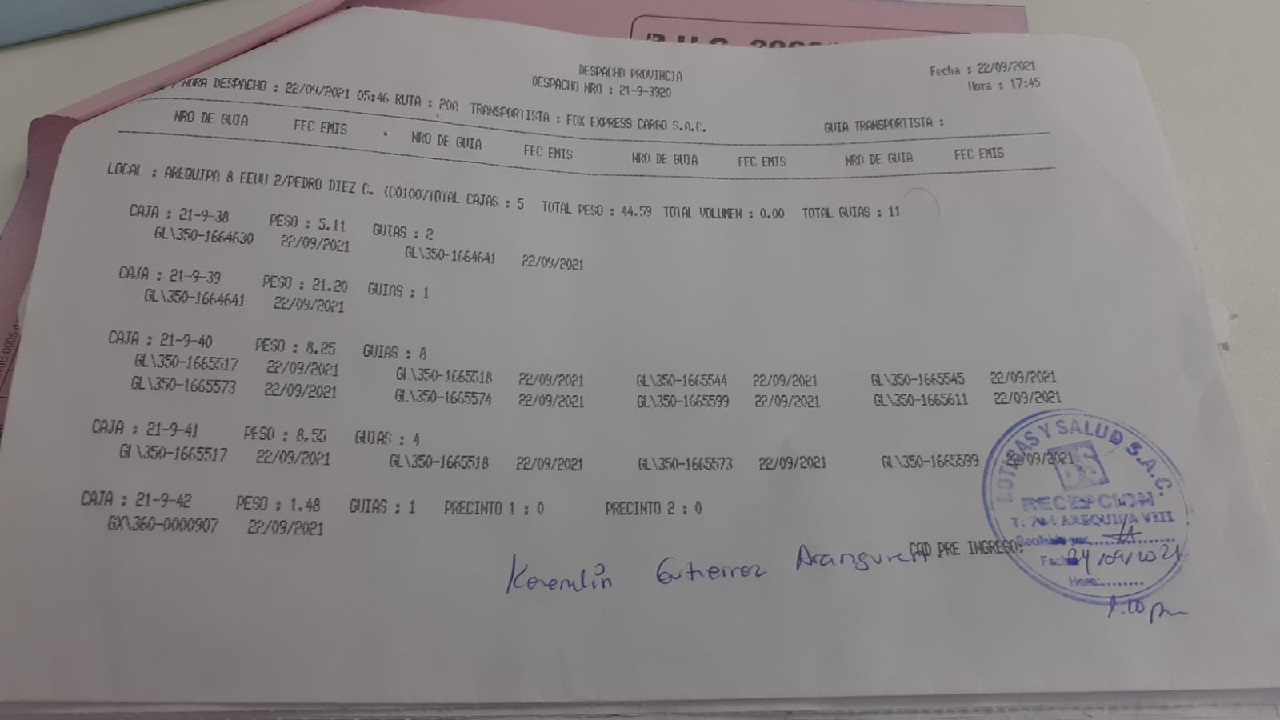 R.U.C. 20
DESPACHO PROVINCIA
Fecha : 22/09/2021
DESPACHO NRO : 21-9-3920
Hora : 17:45
HORA DESPACHO : 22/09/2021 05:46 RUTA : 20A TRANSPORTISTA : FOX EXPRESS CARGO S.A.C.
GUIA TRANSPORTISTA :
NRO DE GUIA FEC EMIS NRO DE GUIA FEC EMIS NRO DE GUIA FEC EMIS NRO DE GUIA FEC EMIS
LOCAL : AREQUIPA 8 2/PEDRO DIEZ C. TOTAL CAJAS : 5 TOTAL PESO : 44.59 TOTAL VOLUMEN : 0.00 TOTAL GUIAS : 11
CAJA : 21-9-38 PESO : 5.11 GUIAS : 2
GL\350-1664630 22/09/2021 GL\350-1664641 22/09/2021
CAJA : 21-9-39 PESO : 21.20 GUIAS : 1
GL\350-1664641 22/09/2021
CAJA : 21-9-40 PESO : 8.25 GUIAS : 8
GL\350-1665517 22/09/2021 GL\350-1665518 22/09/2021 GL\350-1665544 22/09/2021 GL\350-1665545 22/09/2021
GL\350-1665573 22/09/2021 GL\350-1665574 22/09/2021 GL\350-1665599 22/09/2021 GL\350-1665611 22/09/2021
CAJA : 21-9-41 PESO : 8.55 GUIAS : 4
GL\350-1665517 22/09/2021 GL\350-1665518 22/09/2021 GL\350-1665573 22/09/2021 GL\350-1665599 22/09/2021
CAJA : 21-9-42 PESO : 1.48 GUIAS : 1 PRECINTO 1 : 0 PRECINTO 2 : 0
GX\360-0000907 22/09/2021
COD PRE INGRESO:
Gutierrez Aranguren
BOTICAS Y SALUD S.A.C.
RECEPCION
AREQUIPA VIII
Recibido por
Fecha 24/09/2021
Hora: